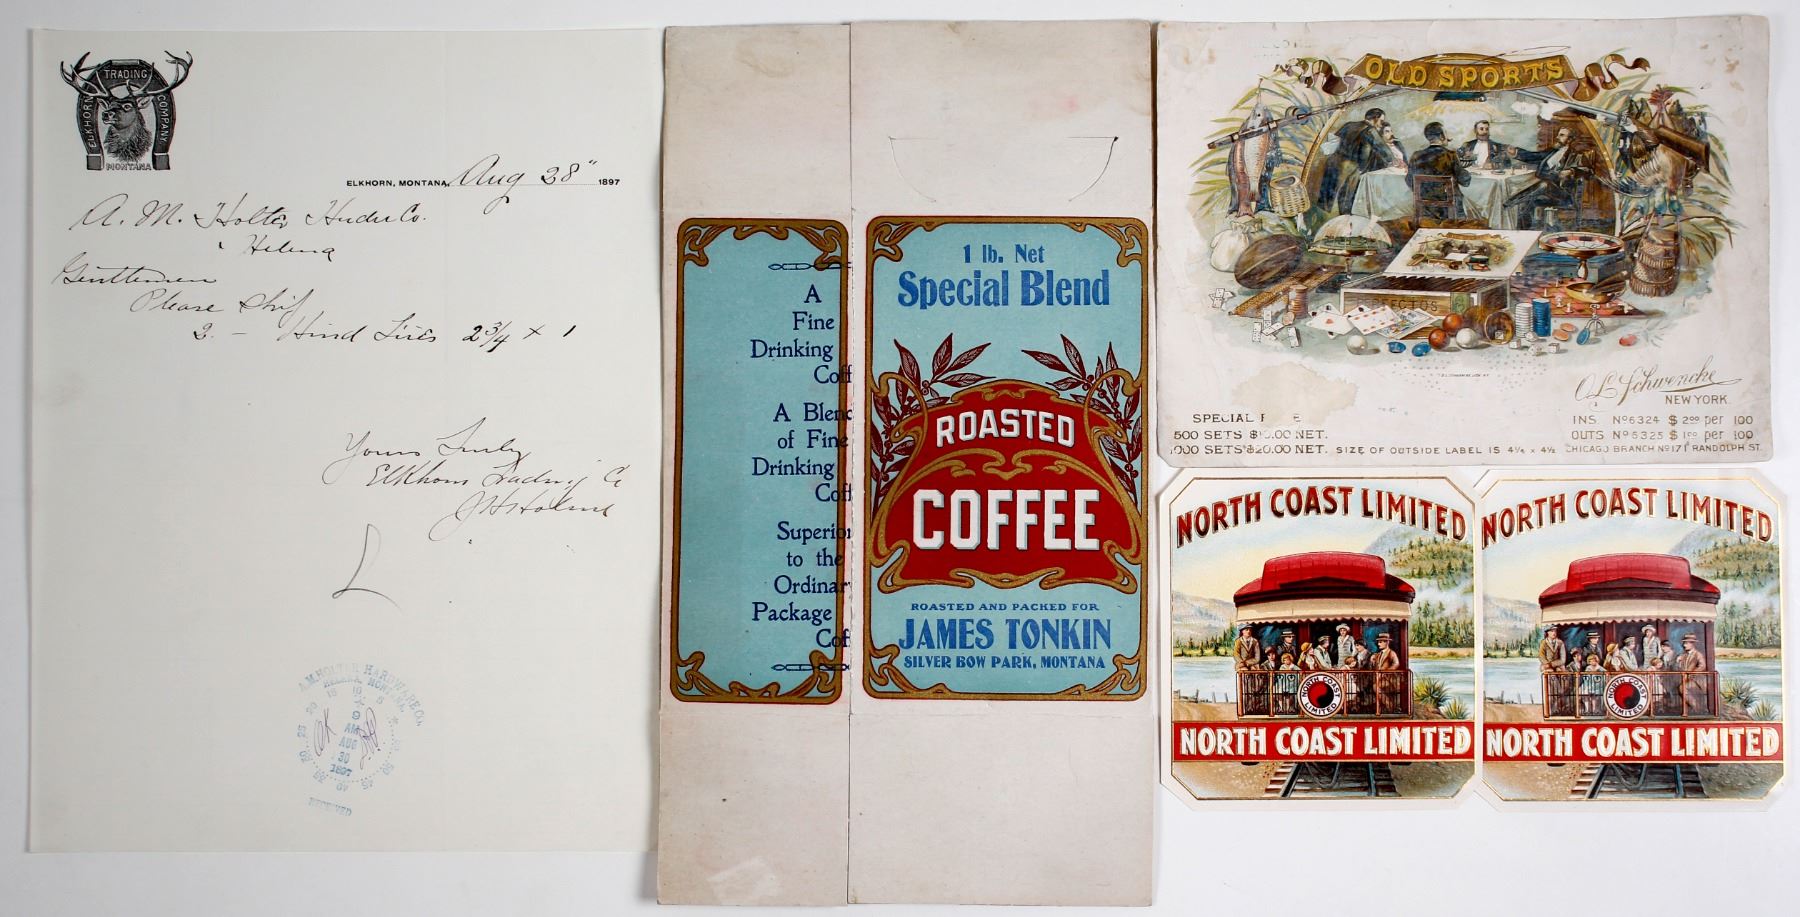 ELKHORN
TRADING
COMPANY
MONTANA
ELKHORN, MONTANA, Aug 28" 1897
A. M. Holter Hdw Co.
Helena
Gentlemen
Please Ship
2 - Hind Tires 2 3/4 x 1
Yours Truly
Elkhorn Trading Co
A.M. HOLTER HARDWARE CO.
HELENA, MONTANA.
OK
9
AM
AUG
30
1897
RECEIVED
A
Fine
Drinking
Coff
A Blend
of Fine
Drinking
Coff
Superior
to the
Ordinar
Package
Cof
1 lb. Net
Special Blend
ROASTED
COFFEE
ROASTED AND PACKED FOR
JAMES TONKIN
SILVER BOW PARK, MONTANA
OLD SPORTS
O L Schwencke
NEW YORK.
SPECIAL
500 SETS NET.
1000 SETS $20.00 NET. SIZE OF OUTSIDE LABEL IS 4 1/4 x 4 1/2
INS Nº 6324 $ 2.00 per 100
OUTS Nº 6325 $ 1.00 per 100
CHICAGO BRANCH Nº 171 RANDOLPH ST.
NORTH COAST LIMITED
NORTH COAST
LIMITED
NORTH COAST LIMITED
NORTH COAST LIMITED
NORTH COAST
LIMITED
NORTH COAST LIMITED